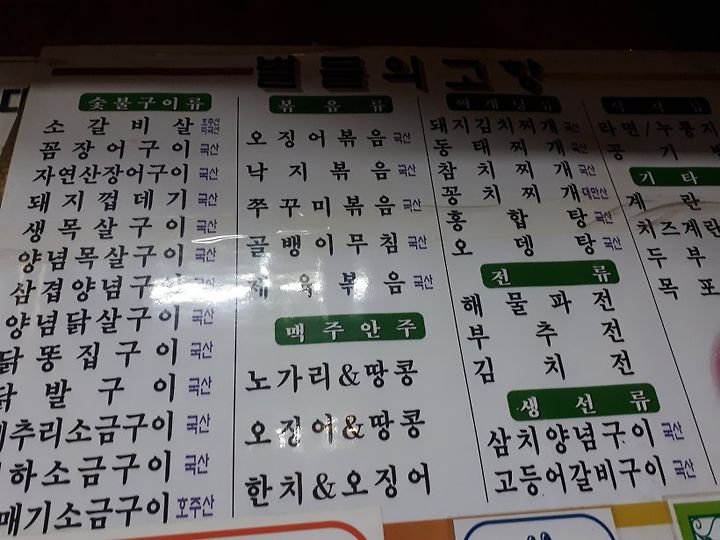 별들의고향
숯불구이류
소갈비살 호주산 미국산
꼼장어구이 국산
자연산장어구이 국산
돼지껍데기 국산
생목살구이 국산
양념목살구이 국산
삼겹양념구이 국산
양념닭살구이 국산
닭똥집구이 국산
닭발구이 국산
메추리소금구이 국산
하소금구이 국산
매기소금구이 호주산
볶음류
오징어볶음 국산
낙지볶음 국산
쭈꾸미볶음 국산
골뱅이무침 국산
제육볶음 국산
맥주안주
노가리&땅콩
오징어&땅콩
한치&오징어
찌개탕류
돼지김치찌개 국산
동태찌개 국산
참치찌개 국산
꽁치찌개 대만산
홍합탕 국산
오뎅탕 국산
전류
해물파전
부추전
김치전
생선류
삼치양념구이 국산
고등어갈비구이 국산
라면/누룽지
공기
기타
계란
치즈계란
두부
목포